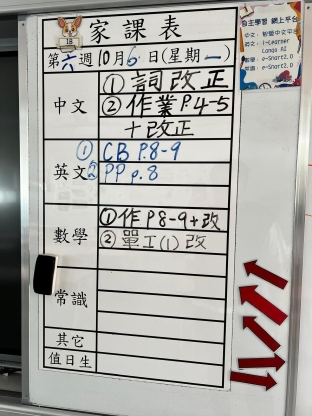 家課表
第六週 10月6日(星期一)
中文
① 詞改正
② 作業P.4-5
+改正
英文
① CB P.8-9
② PP p.8
數學
① 作P8-9+改
② 單工(1)改
常識
其它
值日生
自主學習 網上平台
i-Learner
e-Smart2.0
e-Smart2.0